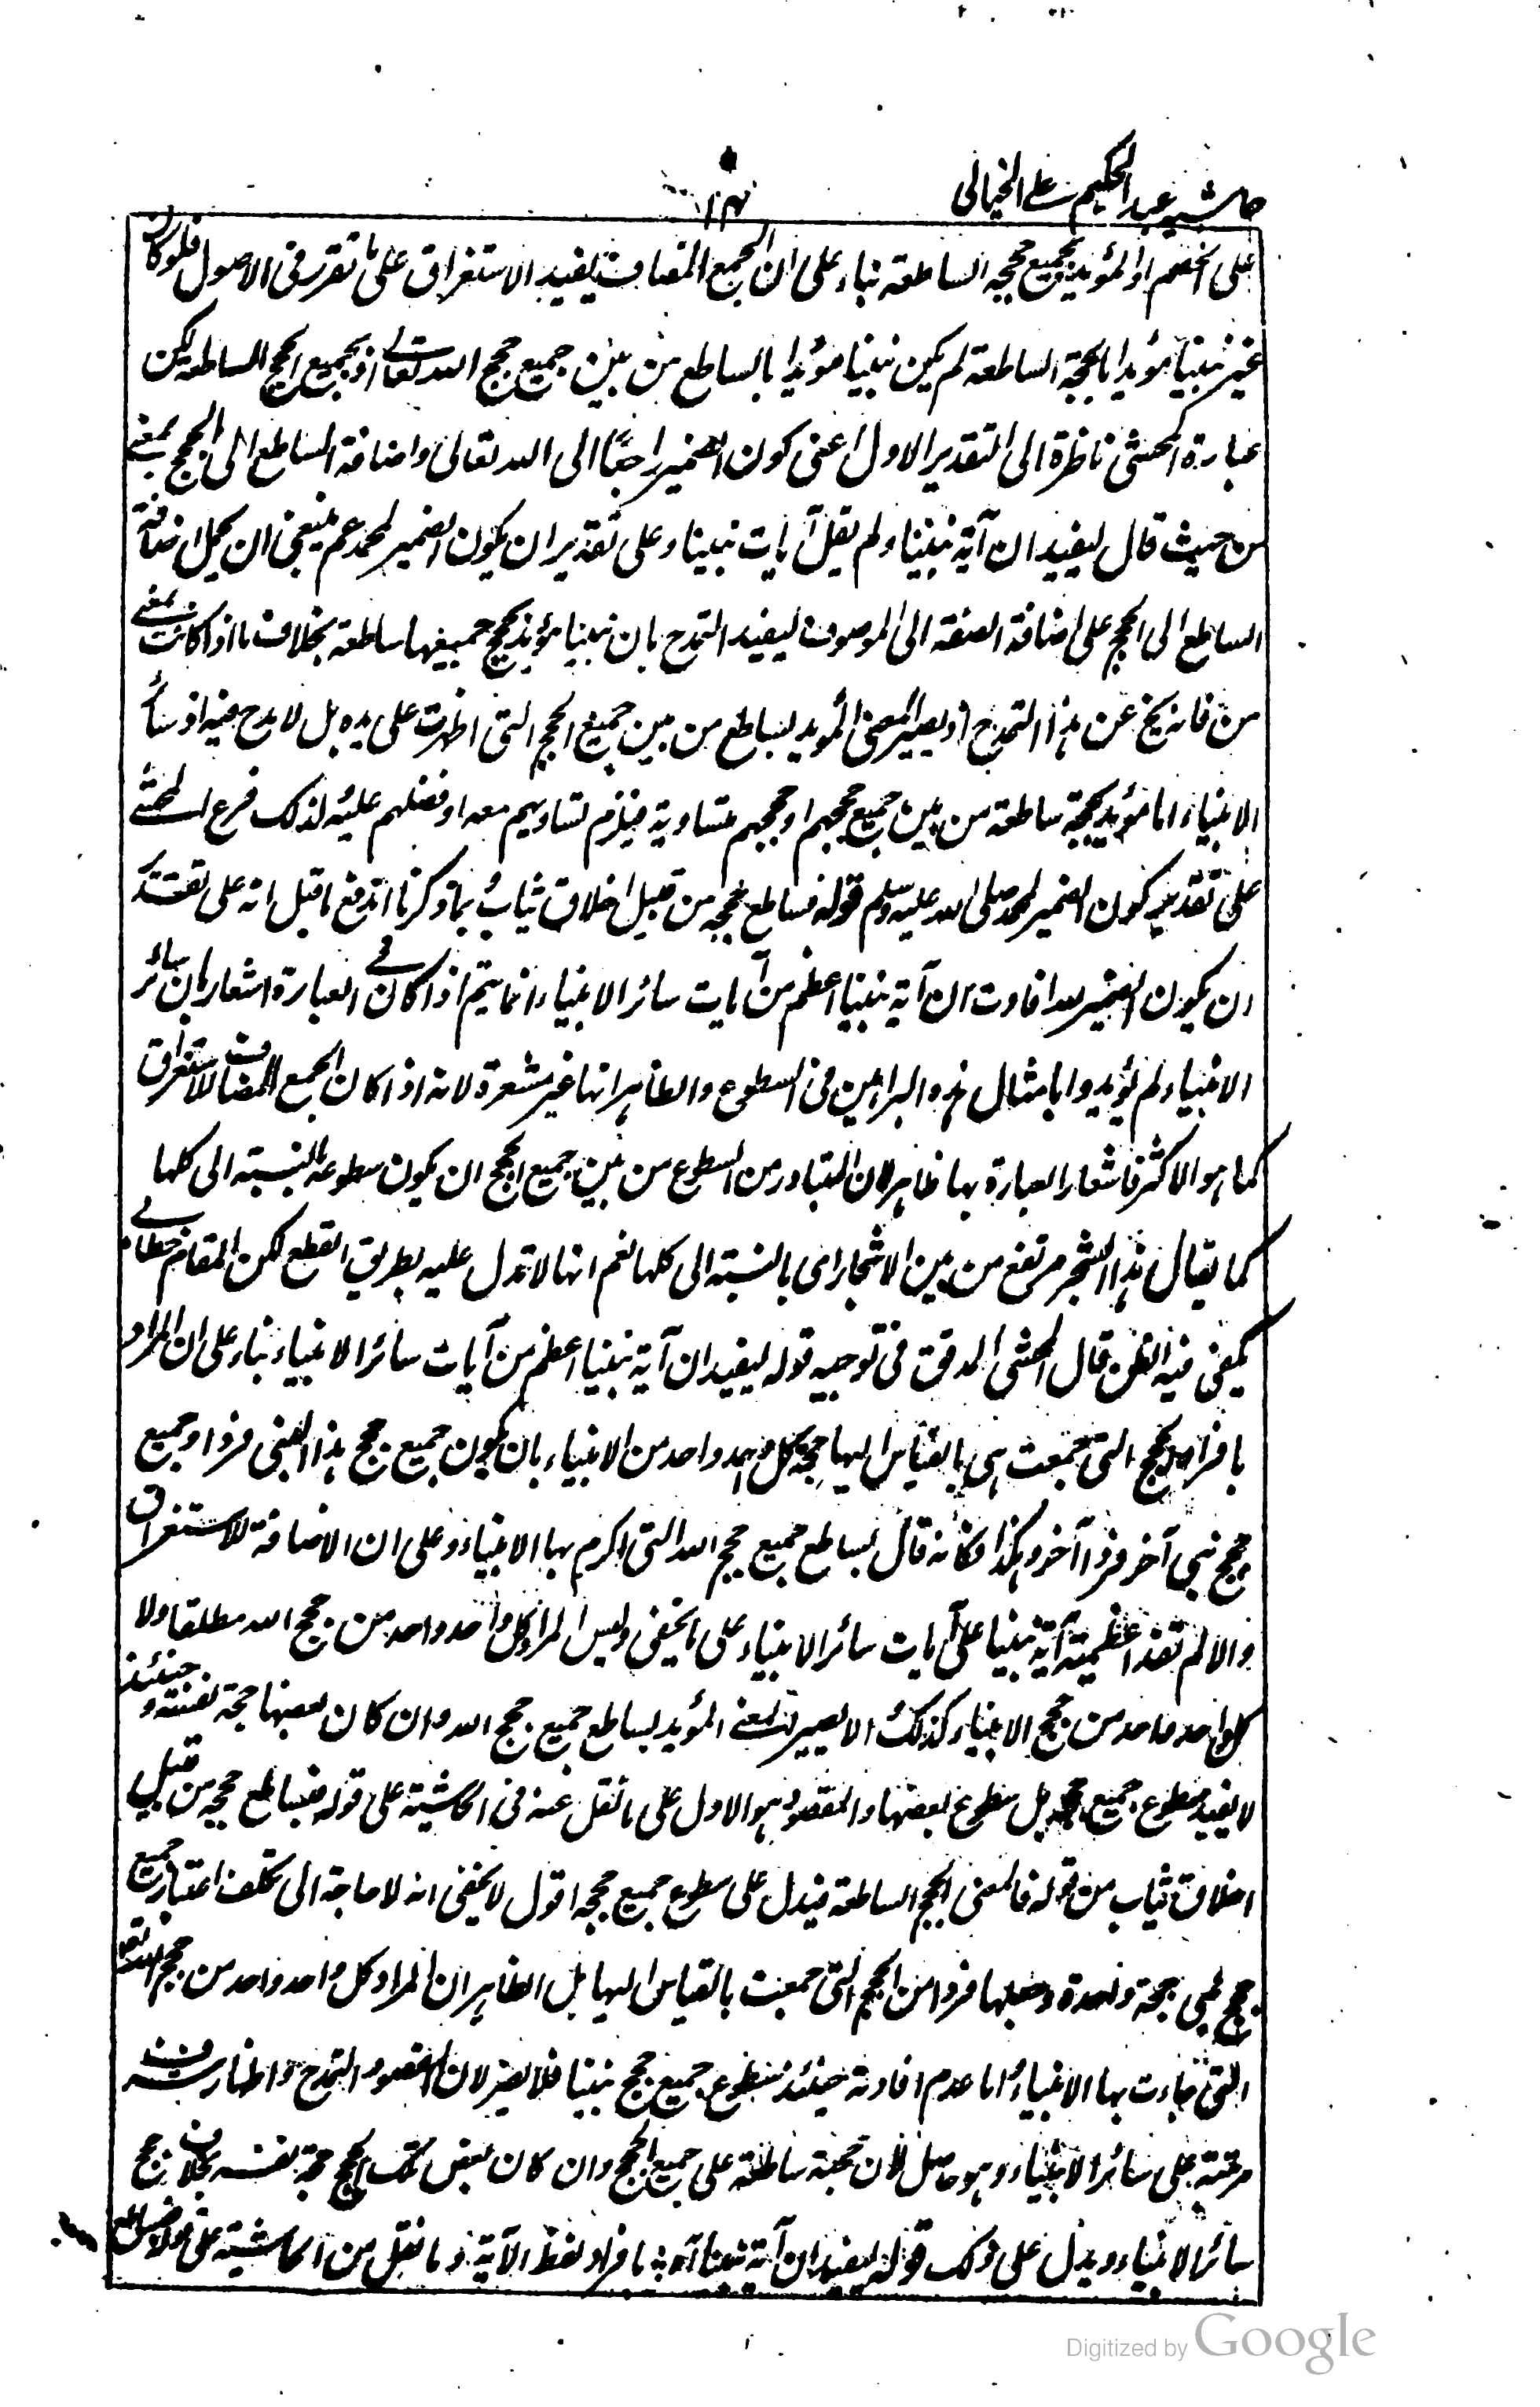 حاشيه عبد الحكيم على الخيالى
١٤
على الخصم او المؤيد بجميع حججه الساطعة بناء على ان الجمع المضاف يفيد الاستغراق على ما تقرر فى الاصول فلو كان
غير نبينا مؤيدا بالحجة الساطعة لم يكن نبينا مؤيدا بالساطع من بين جميع حجج الله تعالى او بجميع الحجج الساطعة لكن
عبارة المحشى ناظرة الى التقدير الاول اعنى كون الضمير راجعًا الى الله تعالى واضافة الساطع الى الحجج بمعنى
من حيث قال ليفيد ان آية نبينا ولم يقل آيات نبينا وعلى تقدير ان يكون الضمير لمحمد عم ينبغى ان يحمل اضافة
الساطع الى الحجج على اضافة الصفة الى الموصوف ليفيد التمدح بان نبينا مؤيد بحجج جميعها ساطعة بخلاف ما اذا كانت بمعنى
من فانه يخ عن هذا التمدح اذ يصير المعنى المؤيد بساطع من بين جميع الحجج التى اظهرت على يده بل لا مدح فيه اذ سائر
الانبياء اما مؤيد بحجة ساطعة من بين جميع حججهم او حججهم متساوية فيلزم تساويهم معه او فضلهم عليه لذلك فرع المحشى
على تقدير كون الضمير لمحمد صلى الله عليه وسلم قوله فساطع حججه من قبيل اخلاق ثياب بما ذكرنا اندفع ما قيل انه على تقدير
ان يكون الضمير لله افادت ان آية نبينا اعظم من آيات سائر الانبياء انما يتم اذا كان فى العبارة اشعار بان سائر
الانبياء لم يؤيدوا بامثال هذه البراهين فى السطوع والظاهر انها غير مشعرة لانه اذا كان الجمع المضاف للاستغراق
كما هو الاكثر فاشعار العبارة بها ظاهر لان المتبادر من السطوع من بين جميع الحجج ان يكون سطوعه بالنسبة الى كلها
كما يقال هذا الشجر مرتفع من بين الاشجار اى بالنسبة الى كلها نعم انها لا تدل عليه بطريق القطع لكن المقام خطابى
يكفى فيه الظن قال المحشى المدقق فى توجيه قوله ليفيد ان آية نبينا اعظم من آيات سائر الانبياء بناء على ان المراد
بافراد الحجج التى جمعت هى بالقياس اليها حجة كل واحد واحد من الانبياء بان يكون جميع حجج هذا النبى فردا وجميع
حجج نبى آخر فردا آخر وهكذا فكأنه قال بساطع جميع حجج الله التى اكرم بها الانبياء وعلى ان الاضافة للاستغراق
والا لم تفد اعظمية آية نبينا على آيات سائر الانبياء على ما لا يخفى وليس المراد كل واحد واحد من حجج الله مطلقا ولا
كل واحد واحد من حجج الانبياء كذلك والا يصير المعنى المؤيد بساطع جميع حجج الله وان كان بعضها حجة نفسه وحينئذ
لا يفيد سطوع جميع حججه بل سطوع بعضها والمقصود هو الاول على ما نقل عنه فى الحاشية على قوله فساطع حججه من قبيل
اخلاق ثياب من قوله فالمعنى الحجج الساطعة فيدل على سطوع جميع حججه اقول لا يخفى انه لا حاجة الى تكلف اعتبار جميع
حجج نبى حجة واحدة وجعلها فردا من الحجج التى جمعت بالقياس اليها بل الظاهر ان المراد كل واحد واحد من حجج الله تعا
التى جاءت بها الانبياء اما عدم افادته حينئذ سطوع جميع حجج نبينا فلا يضر لان المقصود التمدح واظهار شرف
مرتبته على سائر الانبياء وهو حاصل لان حجته ساطعة على جميع الحجج وان كان بعض تلك الحجج حجة نفسه بخلاف حجج
سائر الانبياء ويدل على ذلك قوله ليفيد ان آية نبينا آه بافراد لفظ الآية وما نقل من الحاشية على قوله
Digitized by Google